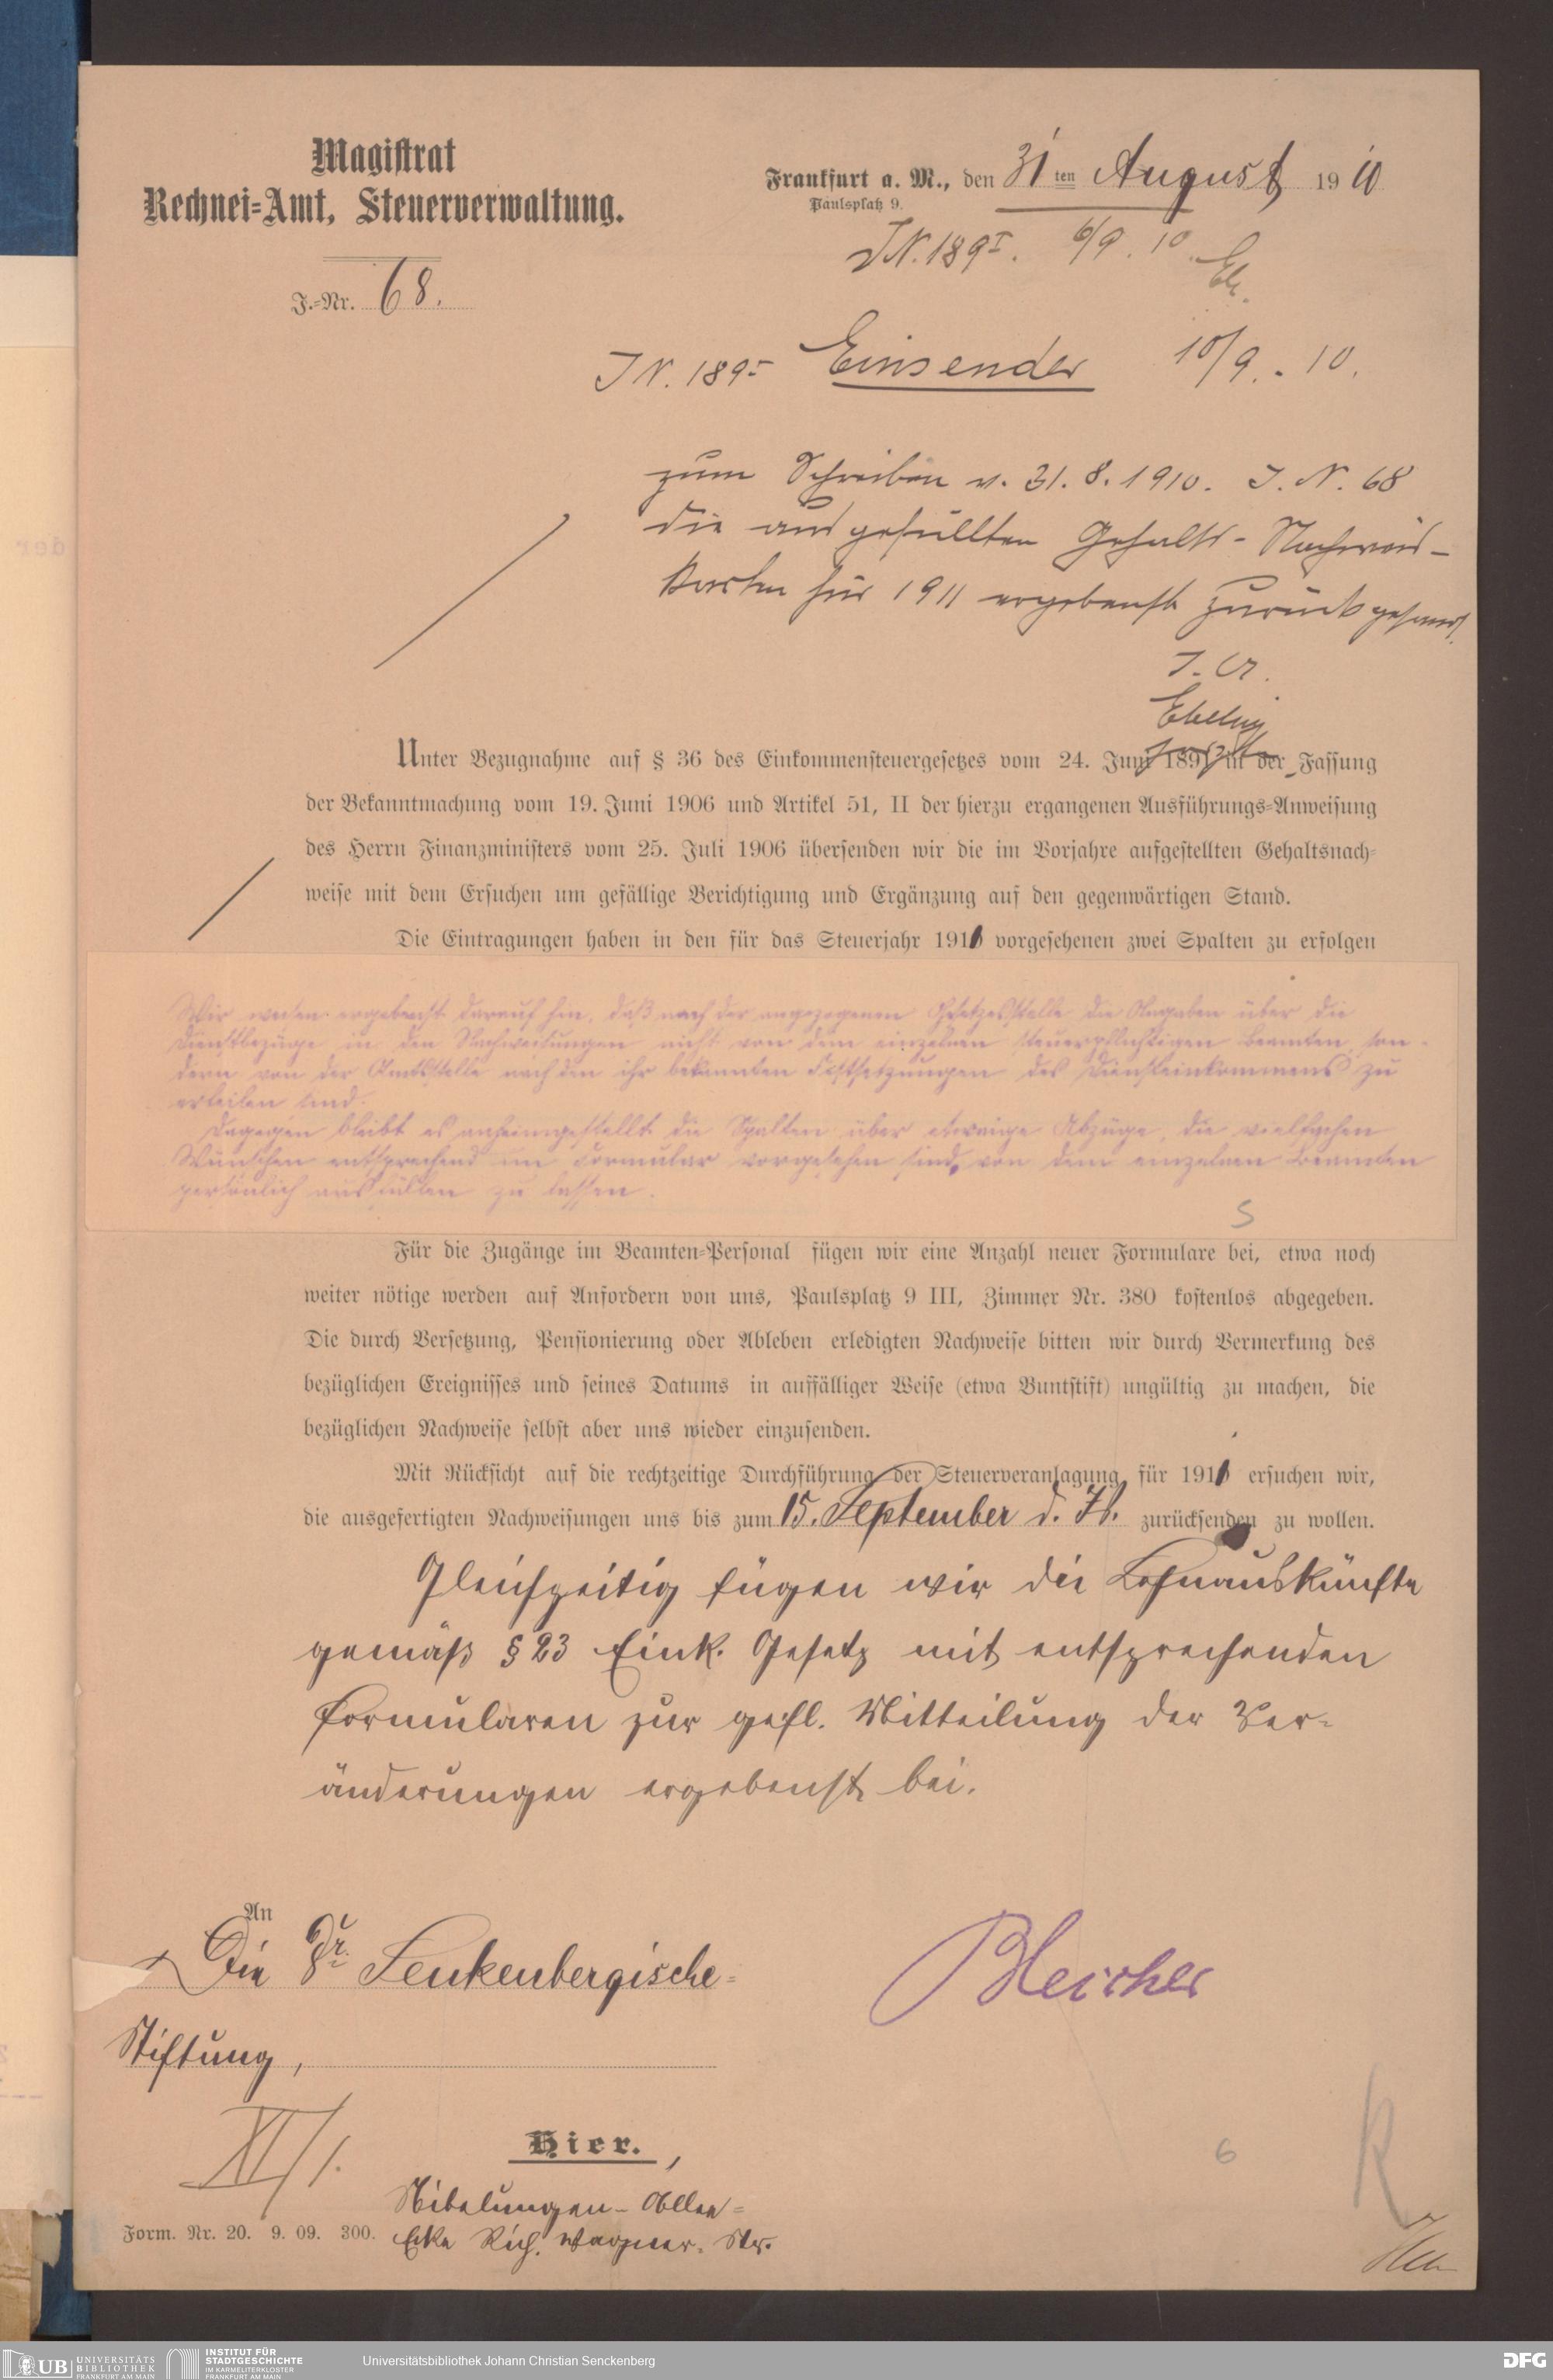 Magistrat
Rechnei-Amt, Steuerverwaltung.
Frankfurt a. M., den 31 ten August 1910
Paulsplatz 9.
J.-Nr. 68.
J.N. 189I. 6/9. 10
J.N. 189I Einsender 10/9. 10.
zum Schreiben v. 31. 8. 1910. J. N. 68
die ausgefüllten Gehalts-Nachweis-
karten für 1911 ergebenst zurückgesandt.
J. A.
Ebeling
Unter Bezugnahme auf § 36 des Einkommensteuergesetzes vom 24. Juni 1891 in der Fassung
der Bekanntmachung vom 19. Juni 1906 und Artikel 51, II der hierzu ergangenen Ausführungs-Anweisung
des Herrn Finanzministers vom 25. Juli 1906 übersenden wir die im Vorjahre aufgestellten Gehaltsnach-
weise mit dem Ersuchen um gefällige Berichtigung und Ergänzung auf den gegenwärtigen Stand.
Die Eintragungen haben in den für das Steuerjahr 1911 vorgesehenen zwei Spalten zu erfolgen
Wir weisen ergebenst darauf hin, daß nach der angezogenen Gesetzesstelle die Angaben über die
Dienstbezüge in den Nachweisungen nicht von dem einzelnen steuerpflichtigen Beamten, son-
dern von der Amtsstelle nach den ihr bekannten Festsetzungen des Diensteinkommens zu
erteilen sind.
Dagegen bleibt es anheimgestellt die Spalten über etwaige Abzüge, die vielfachen
Wünschen entsprechend im Formular vorgesehen sind, von dem einzelnen Beamten
persönlich ausfüllen zu lassen.
5
Für die Zugänge im Beamten-Personal fügen wir eine Anzahl neuer Formulare bei, etwa noch
weiter nötige werden auf Anfordern von uns, Paulsplatz 9 III, Zimmer Nr. 380 kostenlos abgegeben.
Die durch Versetzung, Pensionierung oder Ableben erledigten Nachweise bitten wir durch Vermerkung des
bezüglichen Ereignisses und seines Datums in auffälliger Weise (etwa Buntstift) ungültig zu machen, die
bezüglichen Nachweise selbst aber uns wieder einzusenden.
Mit Rücksicht auf die rechtzeitige Durchführung der Steuerveranlagung für 1911 ersuchen wir,
die ausgefertigten Nachweisungen uns bis zum 15. September d. Js. zurücksenden zu wollen.
Gleichzeitig fügen wir die Lohnauskünfte
gemäß § 23 Eink. Gesetz mit entsprechenden
Formularen zur gefl. Mitteilung der Ver-
änderungen ergebenst bei.
An
Die Dr. Senkenbergische-
Stiftung,
Bleicher
XI/1.
Hier.,
Nibelungen-Allee-
Ecke Rich. Wagner-Str.
6
R
Form. Nr. 20. 9. 09. 300.
UB UNIVERSITÄTS
BIBLIOTHEK
FRANKFURT AM MAIN
INSTITUT FÜR
STADTGESCHICHTE
IM KARMELITERKLOSTER
FRANKFURT AM MAIN
Universitätsbibliothek Johann Christian Senckenberg
DFG